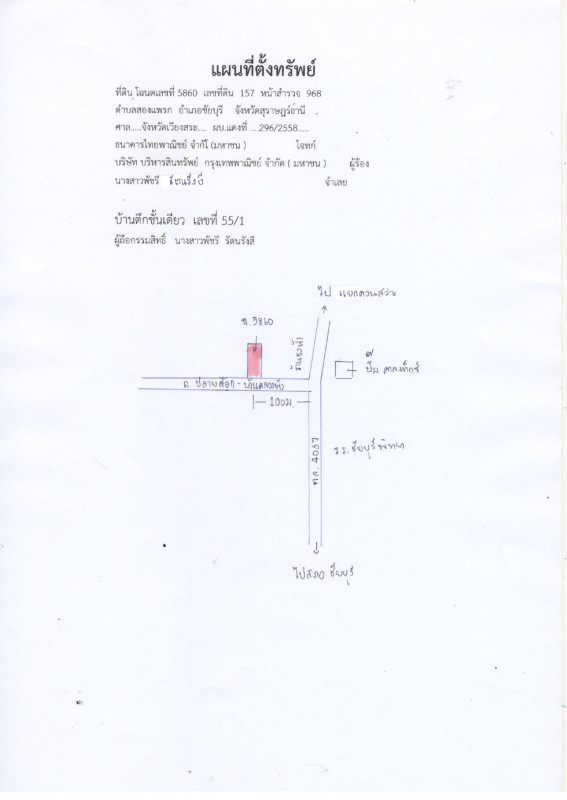 แผนที่ตั้งทรัพย์
ที่ดิน โฉนดเลขที่ 5860 เลขที่ดิน 157 หน้าสำรวจ 968
ตำบลสองแพรก อำเภอชัยบุรี จังหวัดสุราษฎร์ธานี
ศาล.....จังหวัดเวียงสระ.... ผบ.แดงที่ ....296/2558.....
ธนาคารไทยพาณิชย์ จำกัด (มหาชน ) โจทก์
บริษัท บริหารสินทรัพย์ กรุงเทพพาณิชย์ จำกัด ( มหาชน ) ผู้ร้อง
นางสาวพัชรี รัตนรังสี จำเลย
บ้านตึกชั้นเดียว เลขที่ 55/1
ผู้ถือกรรมสิทธิ์ นางสาวพัชรี รัตนรังสี
ไป แยกควนสว่าง
ฉ.5860
ปั๊ม คาลเท็กซ์
ถ. ปลายศอก -
100ม.
ทล. 4037
รร.ชัยบุรีพิทยา
ไปสภอ ชัยบุรี